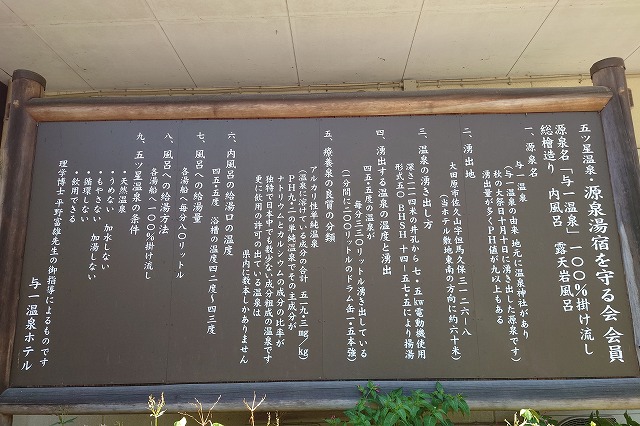 五ツ星温泉・源泉湯宿を守る会 会員
源泉名「与一温泉」一〇〇％掛け流し
総檜造り 内風呂 露天岩風呂
一、源泉名
与一温泉
（与一温泉の由来 地元に温泉神社があり
秋の大祭日十月十日に湧き出した源泉です）
湧出量が多くPH値が九以上もある
二、湧出地
大田原市佐久山字但馬久保三一二六ー八
（当ホテル敷地東南の方向に約六十米）
三、温泉の湧き出し方
深さ一二四米の井孔から 七・五kw電動機使用
形式五〇BHSH十四ー五七・五により揚湯
四、湧出する温泉の温度と湧出
四五・五度の温泉が
毎分三三〇リットル湧き出している
（一分間に二〇〇リットルのドラム缶一・五本強）
五、療養泉の泉質の分類
アルカリ性単純温泉
（温泉に溶けている成分の合計 五一九・三mg／kg）
PH九・二の単純温泉でその主成分が
ナトリウムとカルシウムの成分の比率が
独特で日本中でも数少ない成分組成の温泉です
更に飲用の許可の出ている温泉は
県内に数本しかありません
六、内風呂の給湯口の温度
四五・五度 浴槽の温度四二度〜四三度
七、風呂への給湯量
各湯船へ毎分八〇リットル
八、風呂への給湯方法
各湯船へ一〇〇％掛け流し
九、五ツ星温泉の条件
・天然温泉
・うめない 加水しない
・もやさない 加湯しない
・循環しない
・飲用できる
理学博士 平野富雄先生の御指導によるものです
与一温泉ホテル